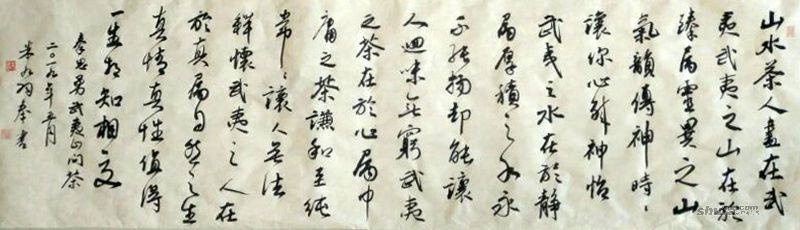 山水茶人盡在武
夷武夷之山在於
臻屬靈異之山
氣韻傳神時時
讓你心曠神怡
武夷之水在於靜
屬厚積之水永
不張揚却能讓
人回味無窮武夷
之茶在於心屬中
庸之茶謙和至純
常常讓人無法
釋懷武夷之人在
於真屬自然之生
真情真性值得
一生相知相交
秦思勇武夷山問茶
二〇一九年五月